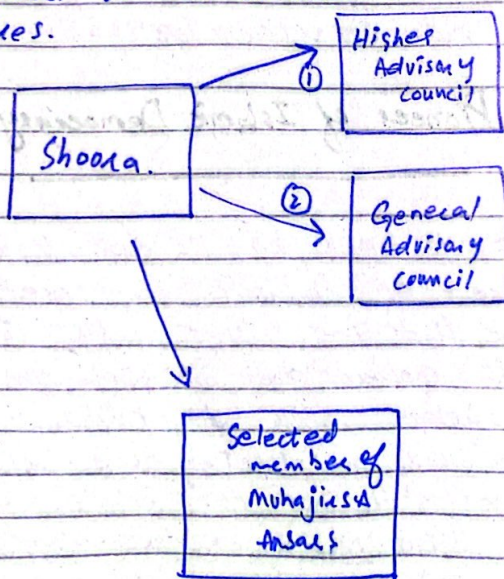 ues.
Higher
Advisory
Council
①
Shoora.
②
General
Advisory
Council
Selected
member of
Muhajirs &
Ansars